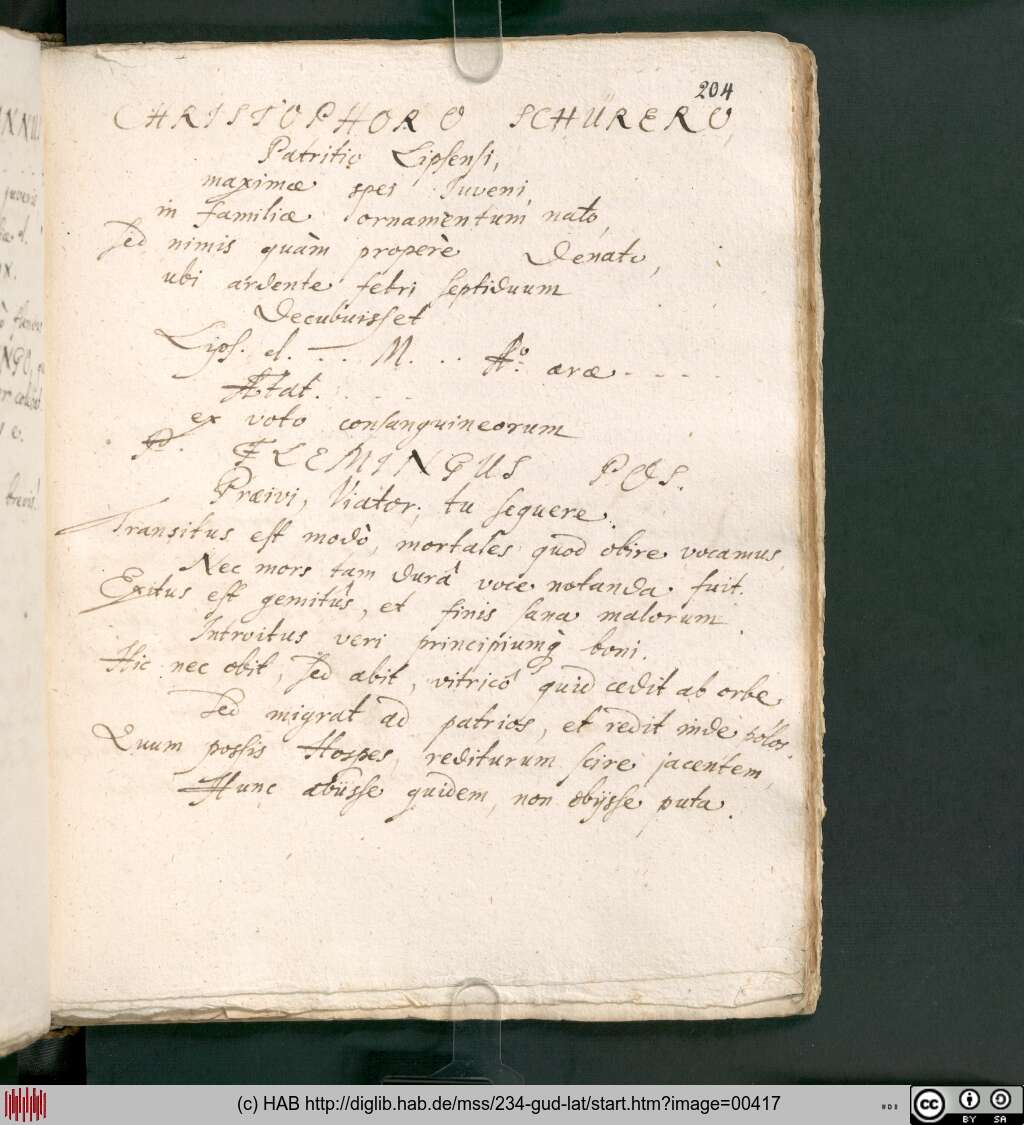 204
CHRISTOPHORO SCHÜRERO,
Patritio Lipsensi,
maximæ spei Iuveni,
in familiæ ornamentum nato,
sed nimis quàm properè Denato,
ubi ardente febri septiduum
Decubuisset
Lips. d. - - . M. . . Aº. æræ - - - -
Ætat. . . . .
ex voto consanguineorum
P. FLEMINGUS POS.
Præivi, Viator, tu sequere.
Transitus est modò, mortales quod obire vocamus,
Nec mors tam durâ voce notanda fuit.
Exitus est gemitûs, et finis sana malorum
Introitus veri principiumq; boni.
Hic nec obit, sed abit, vitrico quid cedit ab orbe
Sed migrat ad patrios, et redit inde polos.
Quum possis Hospes, rediturum scire jacentem,
Hunc abiisse quidem, non obijsse puta.
ANNU
juvenis
d.
NGO,
brevis.
(c) HAB http://diglib.hab.de/mss/234-gud-lat/start.htm?image=00417
cc BY SA